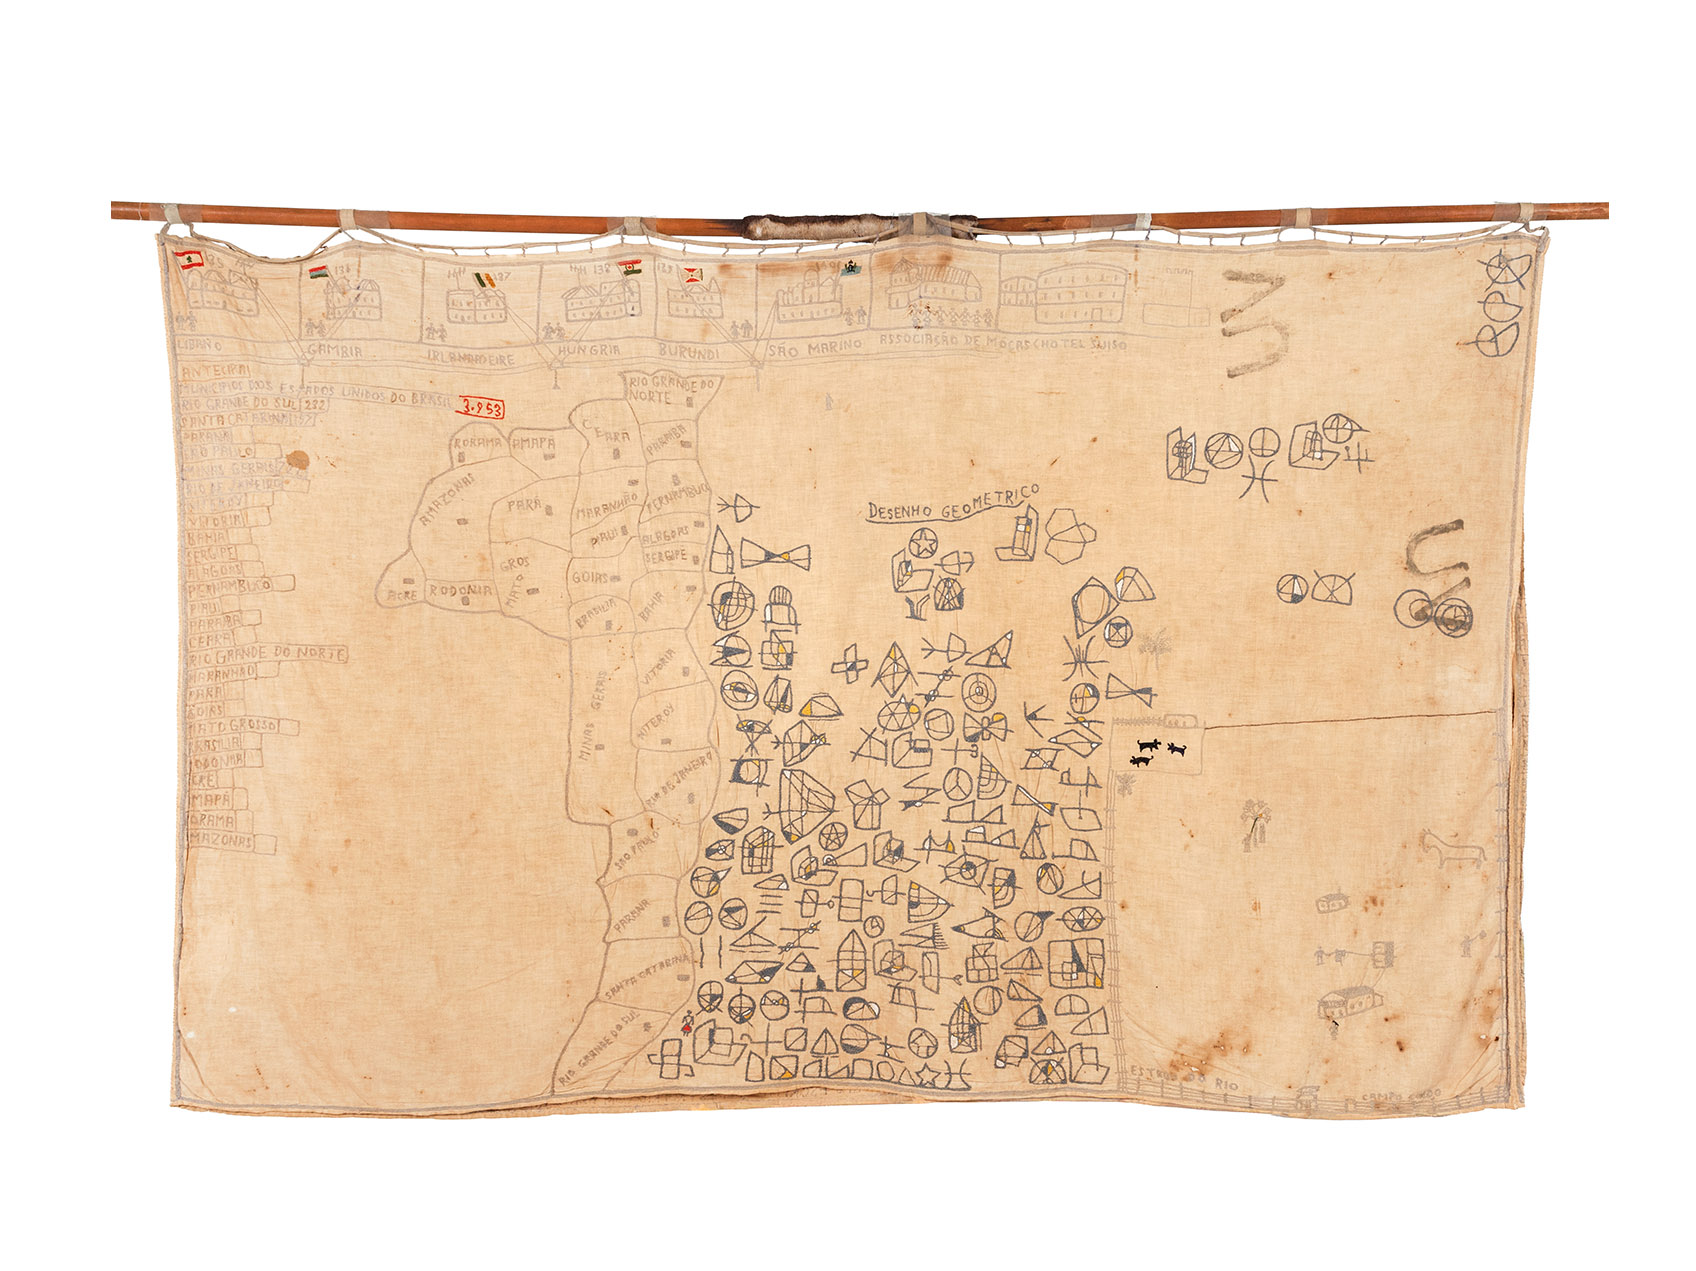 135
136
137
138
139
LIBANO
GAMBIA
IRLANDADEIRE
HUNGRIA
BURUNDI
SÃO MARINO
ASSOCIAÇÃO DE MOÇAS CHOTEL SUISO
ANTECIPA
MUNICIPIOS DOOS ESTADOS UNIDOS DO BRASIL 3.953
RIO GRANDE DO SUL 232
SANTA CATARINA
PARANA
SÃO PAULO
MINAS GERAIS
RIO DE JANEIRO
VITORIA
BAHIA
SERGIPE
ALAGOAS
PERNAMBUCO
PIAUI
PARAIBA
CEARA
RIO GRANDE DO NORTE
MARANHÃO
PARA
GOIAS
MATO GROSSO
BRASILIA
RODONIA
ACRE
AMAPA
RORAMA
AMAZONAS
RIO GRANDE DO
NORTE
RORAMA
AMAPA
CEARA
PARAIBA
AMAZONAS
PARA
MARANHÃO
PERNAMBUCO
PIAUI
ALAGOAS
SERGIPE
ACRE
RODONIA
MATO GROS
GOIAS
BRASILIA
BAHIA
MINAS GERAIS
VITORIA
NITEROY
RIO DE JANEIRO
SÃO PAULO
PARANA
SANTA CATARINA
RIO GRANDE DO SUL
DESENHO GEOMETRICO
ESTADO DO RIO